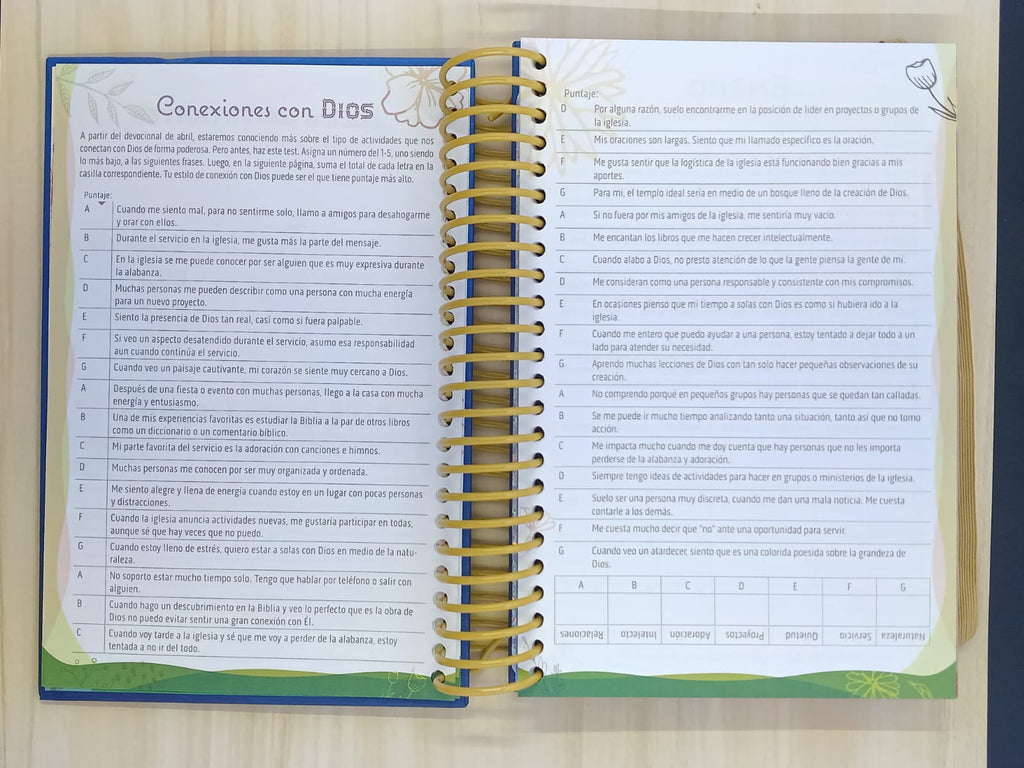 Conexiones con Dios
A partir del devocional de abril, estaremos conociendo más sobre el tipo de actividades que nos
conectan con Dios de forma poderosa. Pero antes, haz este test. Asigna un número del 1-5, uno siendo
lo más bajo, a las siguientes frases. Luego, en la siguiente página, suma el total de cada letra en la
casilla correspondiente. Tu estilo de conexión con Dios puede ser el que tiene puntaje más alto.
Puntaje:
A Cuando me siento mal, para no sentirme solo, llamo a amigos para desahogarme
y orar con ellos.
B Durante el servicio en la iglesia, me gusta más la parte del mensaje.
C En la iglesia se me puede conocer por ser alguien que es muy expresiva durante
la alabanza.
D Muchas personas me pueden describir como una persona con mucha energía
para un nuevo proyecto.
E Siento la presencia de Dios tan real, casi como si fuera palpable.
F Si veo un aspecto desatendido durante el servicio, asumo esa responsabilidad
aun cuando continúa el servicio.
G Cuando veo un paisaje cautivante, mi corazón se siente muy cercano a Dios.
A Después de una fiesta o evento con muchas personas, llego a la casa con mucha
energía y entusiasmo.
B Una de mis experiencias favoritas es estudiar la Biblia a la par de otros libros
como un diccionario o un comentario bíblico.
C Mi parte favorita del servicio es la adoración con canciones e himnos.
D Muchas personas me conocen por ser muy organizada y ordenada.
E Me siento alegre y llena de energía cuando estoy en un lugar con pocas personas
y distracciones.
F Cuando la iglesia anuncia actividades nuevas, me gustaría participar en todas,
aunque sé que hay veces que no puedo.
G Cuando estoy lleno de estrés, quiero estar a solas con Dios en medio de la natu-
raleza.
A No soporto estar mucho tiempo solo. Tengo que hablar por teléfono o salir con
alguien.
B Cuando hago un descubrimiento en la Biblia y veo lo perfecto que es la obra de
Dios no puedo evitar sentir una gran conexión con Él.
C Cuando voy tarde a la iglesia y sé que me voy a perder de la alabanza, estoy
tentada a no ir del todo.
Puntaje:
D Por alguna razón, suelo encontrarme en la posición de líder en proyectos o grupos de
la iglesia.
E Mis oraciones son largas. Siento que mi llamado específico es la oración.
F Me gusta sentir que la logística de la iglesia está funcionando bien gracias a mis
aportes.
G Para mi, el templo ideal sería en medio de un bosque lleno de la creación de Dios.
A Si no fuera por mis amigos de la iglesia, me sentiría muy vacío.
B Me encantan los libros que me hacen crecer intelectualmente.
C Cuando alabo a Dios, no presto atención de lo que la gente piensa la gente de mi.
D Me consideran como una persona responsable y consistente con mis compromisos.
E En ocasiones pienso que mi tiempo a solas con Dios es como si hubiera ido a la
iglesia.
F Cuando me entero que puedo ayudar a una persona, estoy tentado a dejar todo a un
lado para atender su necesidad.
G Aprendo muchas lecciones de Dios con tan solo hacer pequeñas observaciones de su
creación.
A No comprendo porqué en pequeños grupos hay personas que se quedan tan calladas.
B Se me puede ir mucho tiempo analizando tanto una situación, tanto así que no tomo
acción.
C Me impacta mucho cuando me doy cuenta que hay personas que no les importa
perderse de la alabanza y adoración.
D Siempre tengo ideas de actividades para hacer en grupos o ministerios de la iglesia.
E Suelo ser una persona muy discreta, cuando me dan una mala noticia. Me cuesta
contarle a los demás.
F Me cuesta mucho decir que "no" ante una oportunidad para servir.
G Cuando veo un atardecer, siento que es una colorida poesída sobre la grandeza de
Dios.
A B C D E F G
Relaciones Intelecto Adoración Proyectos Quietud Servicio Naturaleza